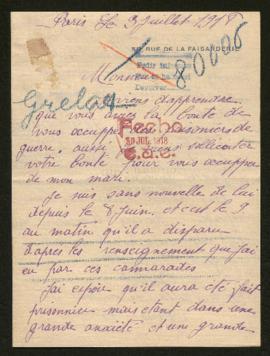 Paris le 3 Juillet 1918
RUE DE LA FAISANDERIE
80006
Monsieur
Grelaq
Je viens d'apprendre
que vous avez la bonté de
vous occuper des prisonniers de
guerre, aussi solliciter
votre bonté pour vous occuper
de mon mari.
Fecha
20 JUL. 1918
C.d.C.
Je suis sans nouvelle de lui
depuis le 8 Juin. et c'est le 9
au matin qu'il a disparu
d'après les renseignement que j'ai
eu par ces camarades
J'ai espoir qu'il aura été fait
prisonnier mais etant dans une
grande anxiété et une grande